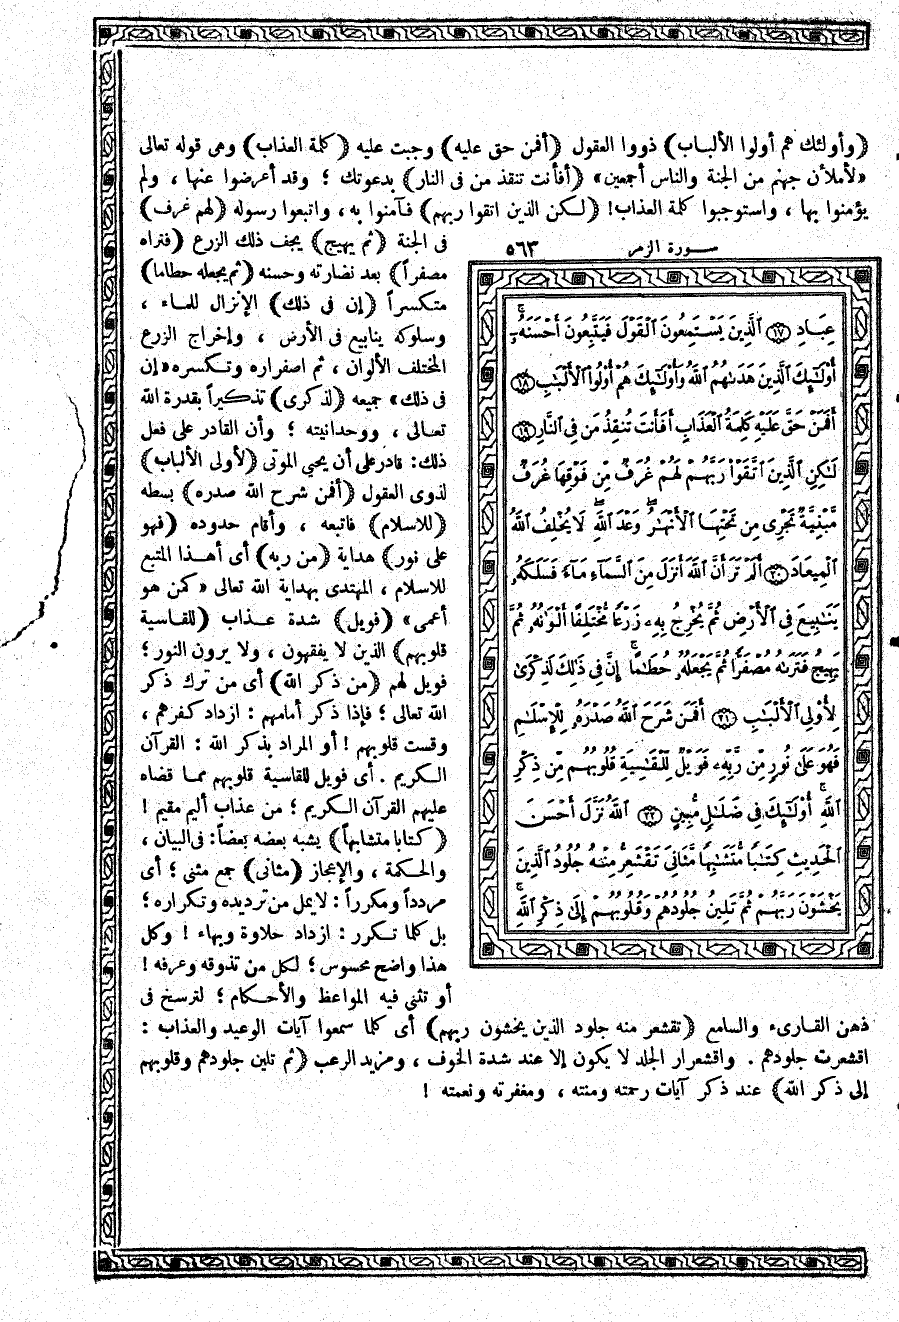 (وأولئك هم أولوا الألباب) ذووا العقول (أفمن حق عليه) وجبت عليه (كلمة العذاب) وهى قوله تعالى
«لأملأن جهنم من الجنة والناس أجمعين» (أفأنت تنقذ من فى النار) بدعوتك ؛ وقد أعرضوا عنها ، ولم
يؤمنوا بها ، واستوجبوا كلمة العذاب! (لكن الذين اتقوا ربهم) فآمنوا به ، واتبعوا رسوله (لهم غرف)
سورة الزمر ٥٦٣
عِبَادِ ١٧ ٱلَّذِينَ يَسْتَمِعُونَ ٱلْقَوْلَ فَيَتَّبِعُونَ أَحْسَنَهُۥٓ
أُوْلَٰٓئِكَ ٱلَّذِينَ هَدَىٰهُمُ ٱللَّهُ وَأُوْلَٰٓئِكَ هُمْ أُوْلُوا۟ ٱلْأَلْبَٰبِ ١٨
أَفَمَنْ حَقَّ عَلَيْهِ كَلِمَةُ ٱلْعَذَابِ أَفَأَنتَ تُنقِذُ مَن فِى ٱلنَّارِ ١٩
لَٰكِنِ ٱلَّذِينَ ٱتَّقَوْا۟ رَبَّهُمْ لَهُمْ غُرَفٌ مِّن فَوْقِهَا غُرَفٌ
مَّبْنِيَّةٌ تَجْرِى مِن تَحْتِهَا ٱلْأَنْهَٰرُ وَعْدَ ٱللَّهِ لَا يُخْلِفُ ٱللَّهُ
ٱلْمِيعَادَ ٢٠ أَلَمْ تَرَ أَنَّ ٱللَّهَ أَنزَلَ مِنَ ٱلسَّمَآءِ مَآءً فَسَلَكَهُۥ
يَنَٰبِيعَ فِى ٱلْأَرْضِ ثُمَّ يُخْرِجُ بِهِۦ زَرْعًا مُّخْتَلِفًا أَلْوَٰنُهُۥ ثُمَّ
يَهِيجُ فَتَرَىٰهُ مُصْفَرًّا ثُمَّ يَجْعَلُهُۥ حُطَٰمًا إِنَّ فِى ذَٰلِكَ لَذِكْرَىٰ
لِأُوْلِى ٱلْأَلْبَٰبِ ٢١ أَفَمَن شَرَحَ ٱللَّهُ صَدْرَهُۥ لِلْإِسْلَٰمِ
فَهُوَ عَلَىٰ نُورٍ مِّن رَّبِّهِۦ فَوَيْلٌ لِّلْقَٰسِيَةِ قُلُوبُهُم مِّن ذِكْرِ
ٱللَّهِ أُوْلَٰٓئِكَ فِى ضَلَٰلٍ مُّبِينٍ ٢٢ ٱللَّهُ نَزَّلَ أَحْسَنَ
ٱلْحَدِيثِ كِتَٰبًا مُّتَشَٰبِهًا مَّثَانِىَ تَقْشَعِرُّ مِنْهُ جُلُودُ ٱلَّذِينَ
يَخْشَوْنَ رَبَّهُمْ ثُمَّ تَلِينُ جُلُودُهُمْ وَقُلُوبُهُمْ إِلَىٰ ذِكْرِ ٱللَّهِ
فى الجنة (ثم يهيج) يجف ذلك الزرع (فتراه
مصفراً) بعد نضارته وحسنه (ثم يجعله حطاما)
متكسراً (إن فى ذلك) الإنزال للماء ،
وسلوكه ينابيع فى الأرض ، وإخراج الزرع
المختلف الألوان ، ثم اصفراره وتكسره «إن
فى ذلك» جميعه (لذكرى) تذكيراً بقدرة الله
تعالى ، ووحدانيته ؛ وأن القادر على فعل
ذلك: قادر على أن يحيى الموتى (لأولى الألباب)
لذوى العقول (أفمن شرح الله صدره) بسطه
(للاسلام) فاتبعه ، وأقام حدوده (فهو
على نور) هداية (من ربه) أى أهذا المتبع
للاسلام ، المهتدى بهداية الله تعالى «كمن هو
أعمى» (فويل) شدة عذاب (للقاسية
قلوبهم) الذين لا يفقهون ، ولا يرون النور ؛
فويل لهم (من ذكر الله) أى من ترك ذكر
الله تعالى ؛ فإذا ذكر أمامهم : ازداد كفرهم ،
وقست قلوبهم ! أو المراد بذكر الله : القرآن
الكريم . أى فويل للقاسية قلوبهم مما قضاه
عليهم القرآن الكريم ؛ من عذاب أليم مقيم !
(كتابا متشابها) يشبه بعضه بعضاً: فى البيان ،
والحكمة ، والإعجاز (مثانى) جمع مثنى ؛ أى
مردداً ومكرراً : لايمل من ترديده وتكراره ؛
بل كلما تكرر : ازداد حلاوة وبهاء ! وكل
هذا واضح محسوس ؛ لكل من تذوقه وعرفه !
أو تثنى فيه المواعظ والأحكام ؛ لترسخ فى
ذهن القارىء والسامع (تقشعر منه جلود الذين يخشون ربهم) أى كلما سمعوا آيات الوعيد والعذاب :
اقشعرت جلودهم . واقشعرار الجلد لا يكون إلا عند شدة الخوف ، ومزيد الرعب (ثم تلين جلودهم وقلوبهم
إلى ذكر الله) عند ذكر آيات رحمته ومنته ، ومغفرته ونعمته !